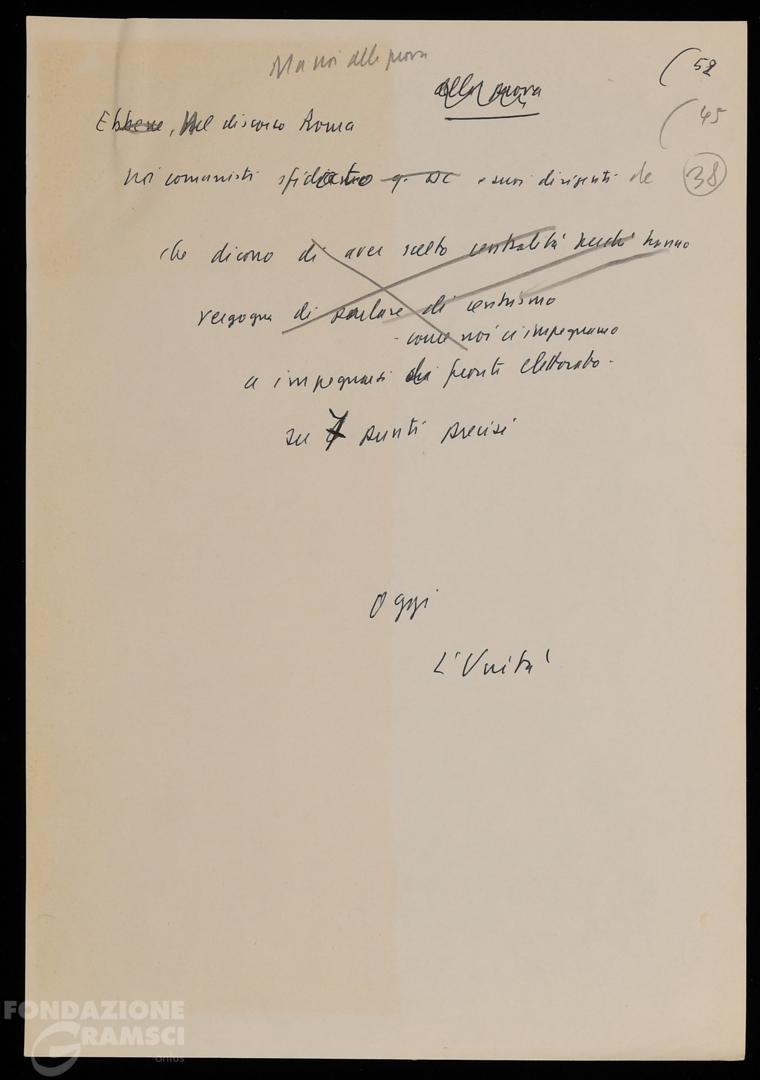 Ma noi alla prova
(52
alla prova
(45
Ebbene, Nel discorso Roma
38
Noi comunisti sfidiamo q. DC e suoi dirigenti
che dicono di aver scelto centralità perché hanno
vergogna di parlare di centrismo
- come noi ci impegnamo
a impegnarsi di fronte elettorato -
su 7 punti precisi
Oggi
L'Unità
FONDAZIONE
GRAMSCI
onlus